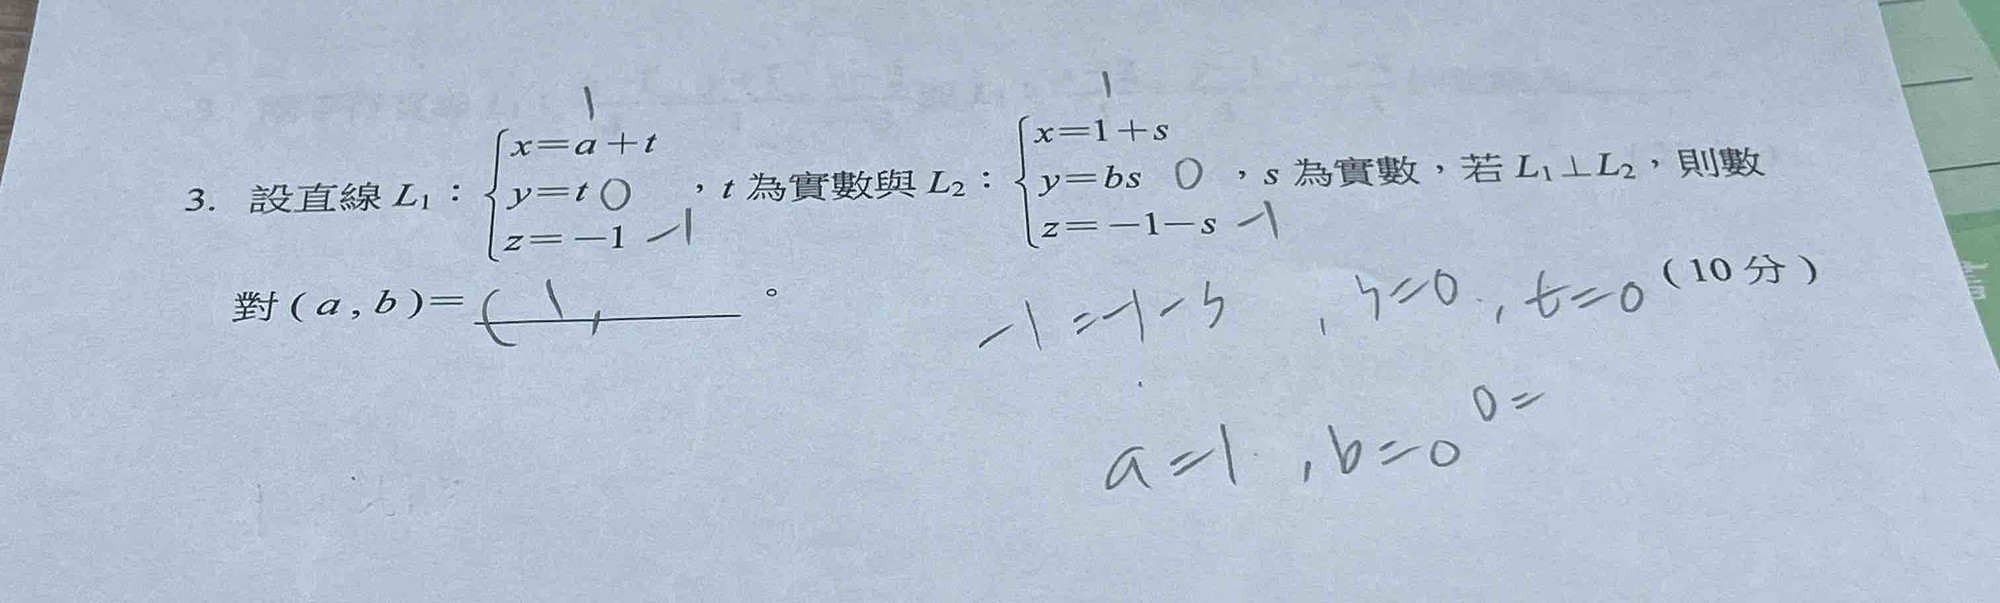 1 1
3. 設直線 L₁：{x=a+t, y=t 0, z=-1 -1，t 為實數與 L₂：{x=1+s, y=bs 0, z=-1-s -1，s 為實數，若 L₁⊥L₂，則數
對 (a , b)= (1, 。 (10 分)
-1=-1-s , s=0 , t=0
0=
a=1 , b=0